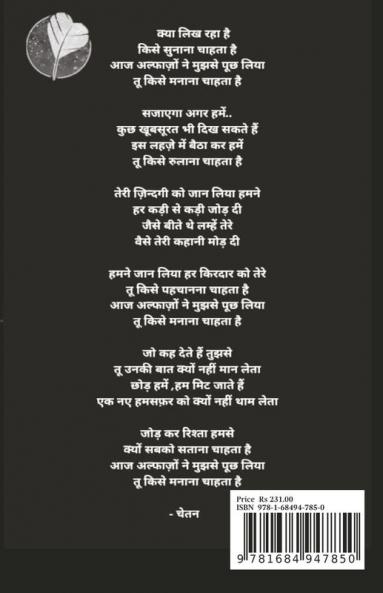 क्या लिख रहा है
किसे सुनाना चाहता है
आज अल्फाज़ों ने मुझसे पूछ लिया
तू किसे मनाना चाहता है
सजाएगा अगर हमें..
कुछ खूबसूरत भी दिख सकते हैं
इस लहज़े में बैठा कर हमें
तू किसे रुलाना चाहता है
तेरी ज़िन्दगी को जान लिया हमने
हर कड़ी से कड़ी जोड़ दी
जैसे बीते थे लम्हें तेरे
वैसे तेरी कहानी मोड़ दी
हमने जान लिया हर किरदार को तेरे
तू किसे पहचानना चाहता है
आज अल्फाज़ों ने मुझसे पूछ लिया
तू किसे मनाना चाहता है
जो कह देते हैं तुझसे
तू उनकी बात क्यों नहीं मान लेता
छोड़ हमें ,हम मिट जाते हैं
एक नए हमसफ़र को क्यों नहीं थाम लेता
जोड़ कर रिश्ता हमसे
क्यों सबको सताना चाहता है
आज अल्फाज़ों ने मुझसे पूछ लिया
तू किसे मनाना चाहता है
- चेतन
Price Rs 231.00
ISBN 978-1-68494-785-0
9 781684 947850